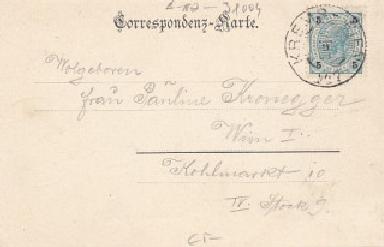 Correspondenz-Karte.
KREMS
5 5
5 5
Wolgeboren
Frau Pauline Kronegger
Wien I.
Kohlmarkt 10
IV. Stock 9.